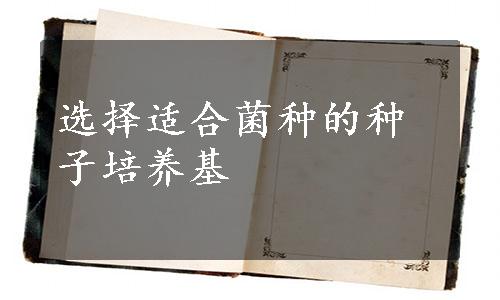 选择适合菌种的种
子培养基